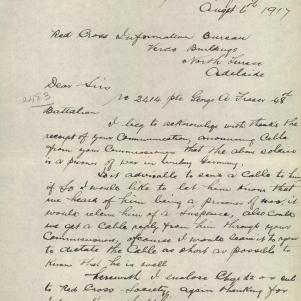 Augst 6th 1917
Red Cross Information Bureau
Verco Buildings
North Terrace
Adelaide
Dear Sirs
2453
re 2414 pte George A Fraser 48th
Battalion
I beg to acknowledge with thanks the
receipt of your Communication, announcing Cable
from your Commissioner that the above soldier
is a prisoner of war in Germany.
Is it advisable to send a Cable to him
if so I would like to let him know that
we heard of him being a prisoner of war, it
would relieve him of a suspense, also could
we get a Cable reply from him through your
Commissioner, of course I would leave it to you
to dictate the Cable as short as possible to
know that he is well
herewith I enclose Chq as
to Red Cross Society, again thanking for